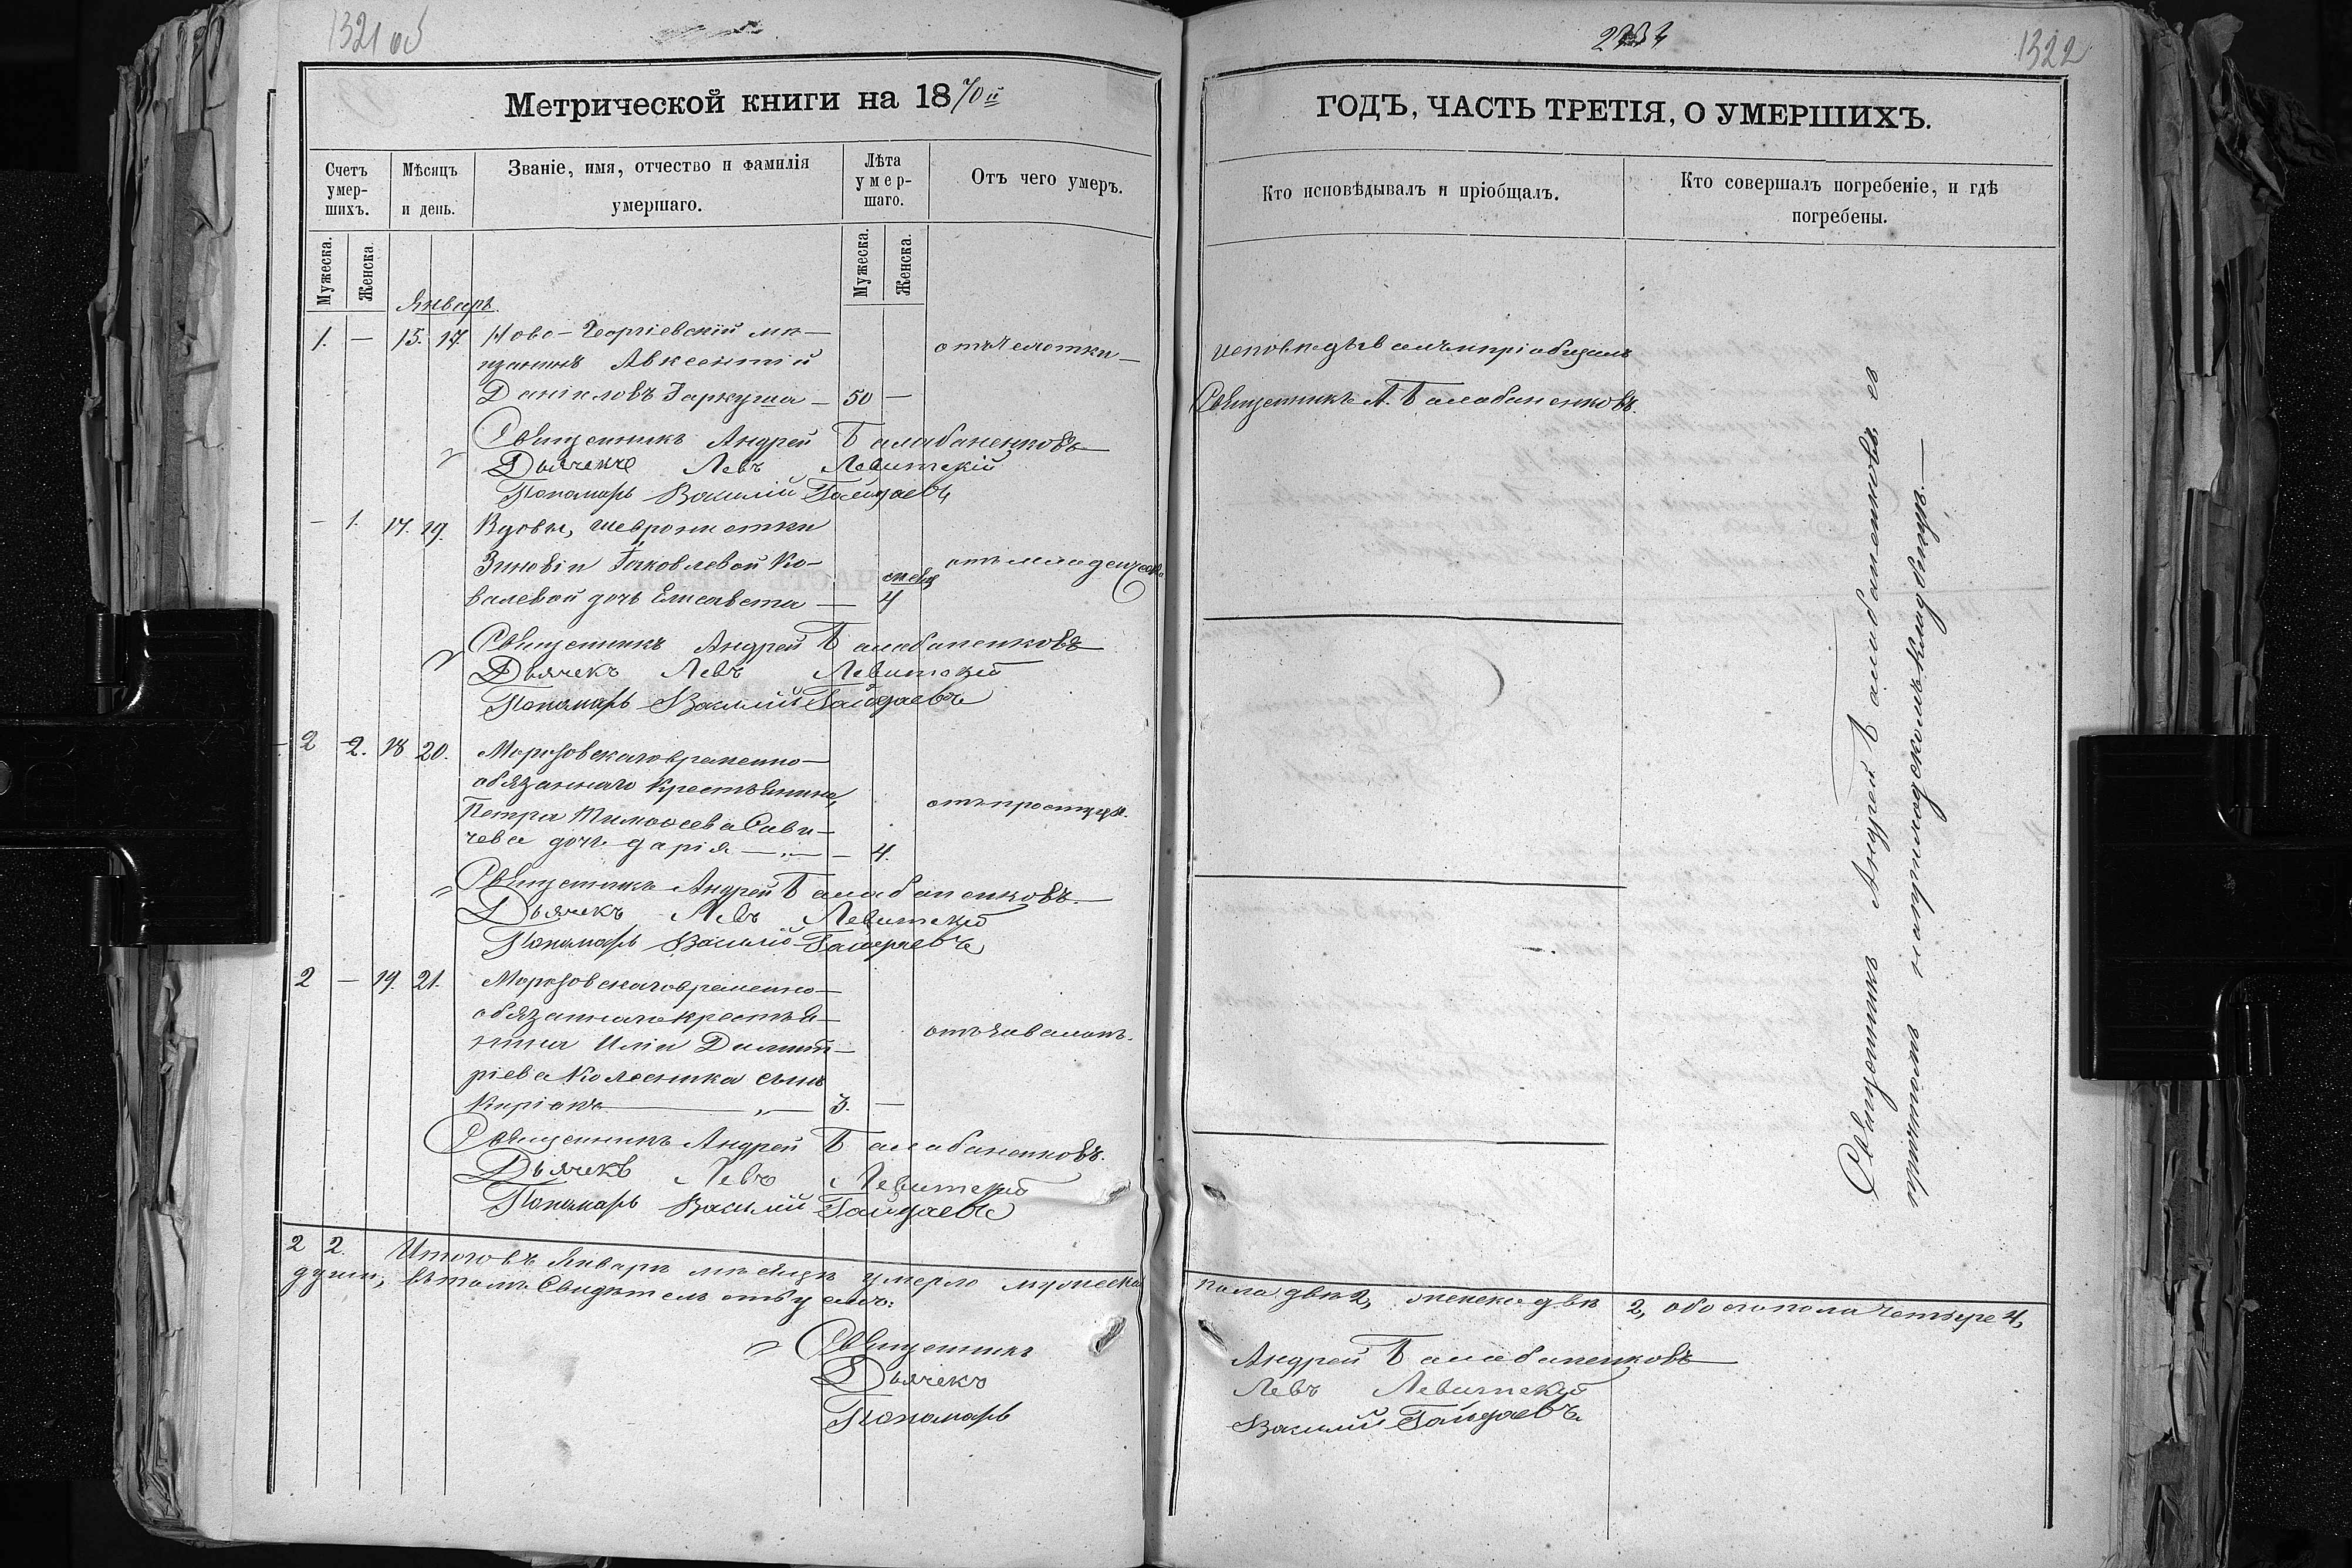 1321 об
Метрической книги на 1870й
Счетъ умер-шихъ.
Мѣсяцъ и день.
Званіе, имя, отчество и фамилія умершаго.
Лѣта умер-шаго.
Отъ чего умеръ.
Мужеска.
Женска.
Мужеска.
Женска.
Январь.
1. — 15. 17. Ново-Георгіевскій мѣ- отъ чахотки
щанинъ Авксентій
Даніиловъ Гаркуша — 50 —
Священникъ Андрей Балабаненковъ
Дьячекъ Левъ Левитскій
Пономарь Василій Гайдаевъ
— 1. 17. 19. Вдовы,
Зиновіи Яковлевой Ко- отъ младенческо
валевой дочь Елисавета — 4
Священникъ Андрей Балабаненковъ
Дьячекъ Левъ Левитскій
Пономарь Василій Гайдаевъ
2 2. 18 20. временно-
обязаннаго крестьянина,
Петра Тимоѳеева Сави- отъ простуды.
чева дочь Дарія — 4.
Священникъ Андрей Балабаненковъ.
Дьячекъ Левъ Левитскій
Пономарь Василій Гайдаевъ
2 — 19. 21. временно-
обязаннаго крестья-
нина Иліи Димит-
ріева Колесника сынъ
Киріакъ — 3. —
Священникъ Андрей Балабаненковъ.
Дьячекъ Левъ Левитскій
Пономарь Василій Гайдаевъ
2 2. Итого въ Январѣ мѣсяцѣ умерло мужеска
души, въ томъ свидѣтельствуемъ:
Священникъ
Дьячекъ
Пономарь
1322
ГОДЪ, ЧАСТЬ ТРЕТІЯ, О УМЕРШИХЪ.
Кто исповѣдывалъ и пріобщалъ.
Кто совершалъ погребеніе, и гдѣ погребены.
исповѣдывалъ и пріобщалъ
Священникъ А. Балабаненковъ.
Священникъ Андрей Балабаненковъ, съ
причтомъ на приходскомъ кладбищѣ.—
пола двѣ 2, женска двѣ 2, обоего пола четыре 4,
Андрей Балабаненковъ
Левъ Левитскій
Василій Гайдаевъ